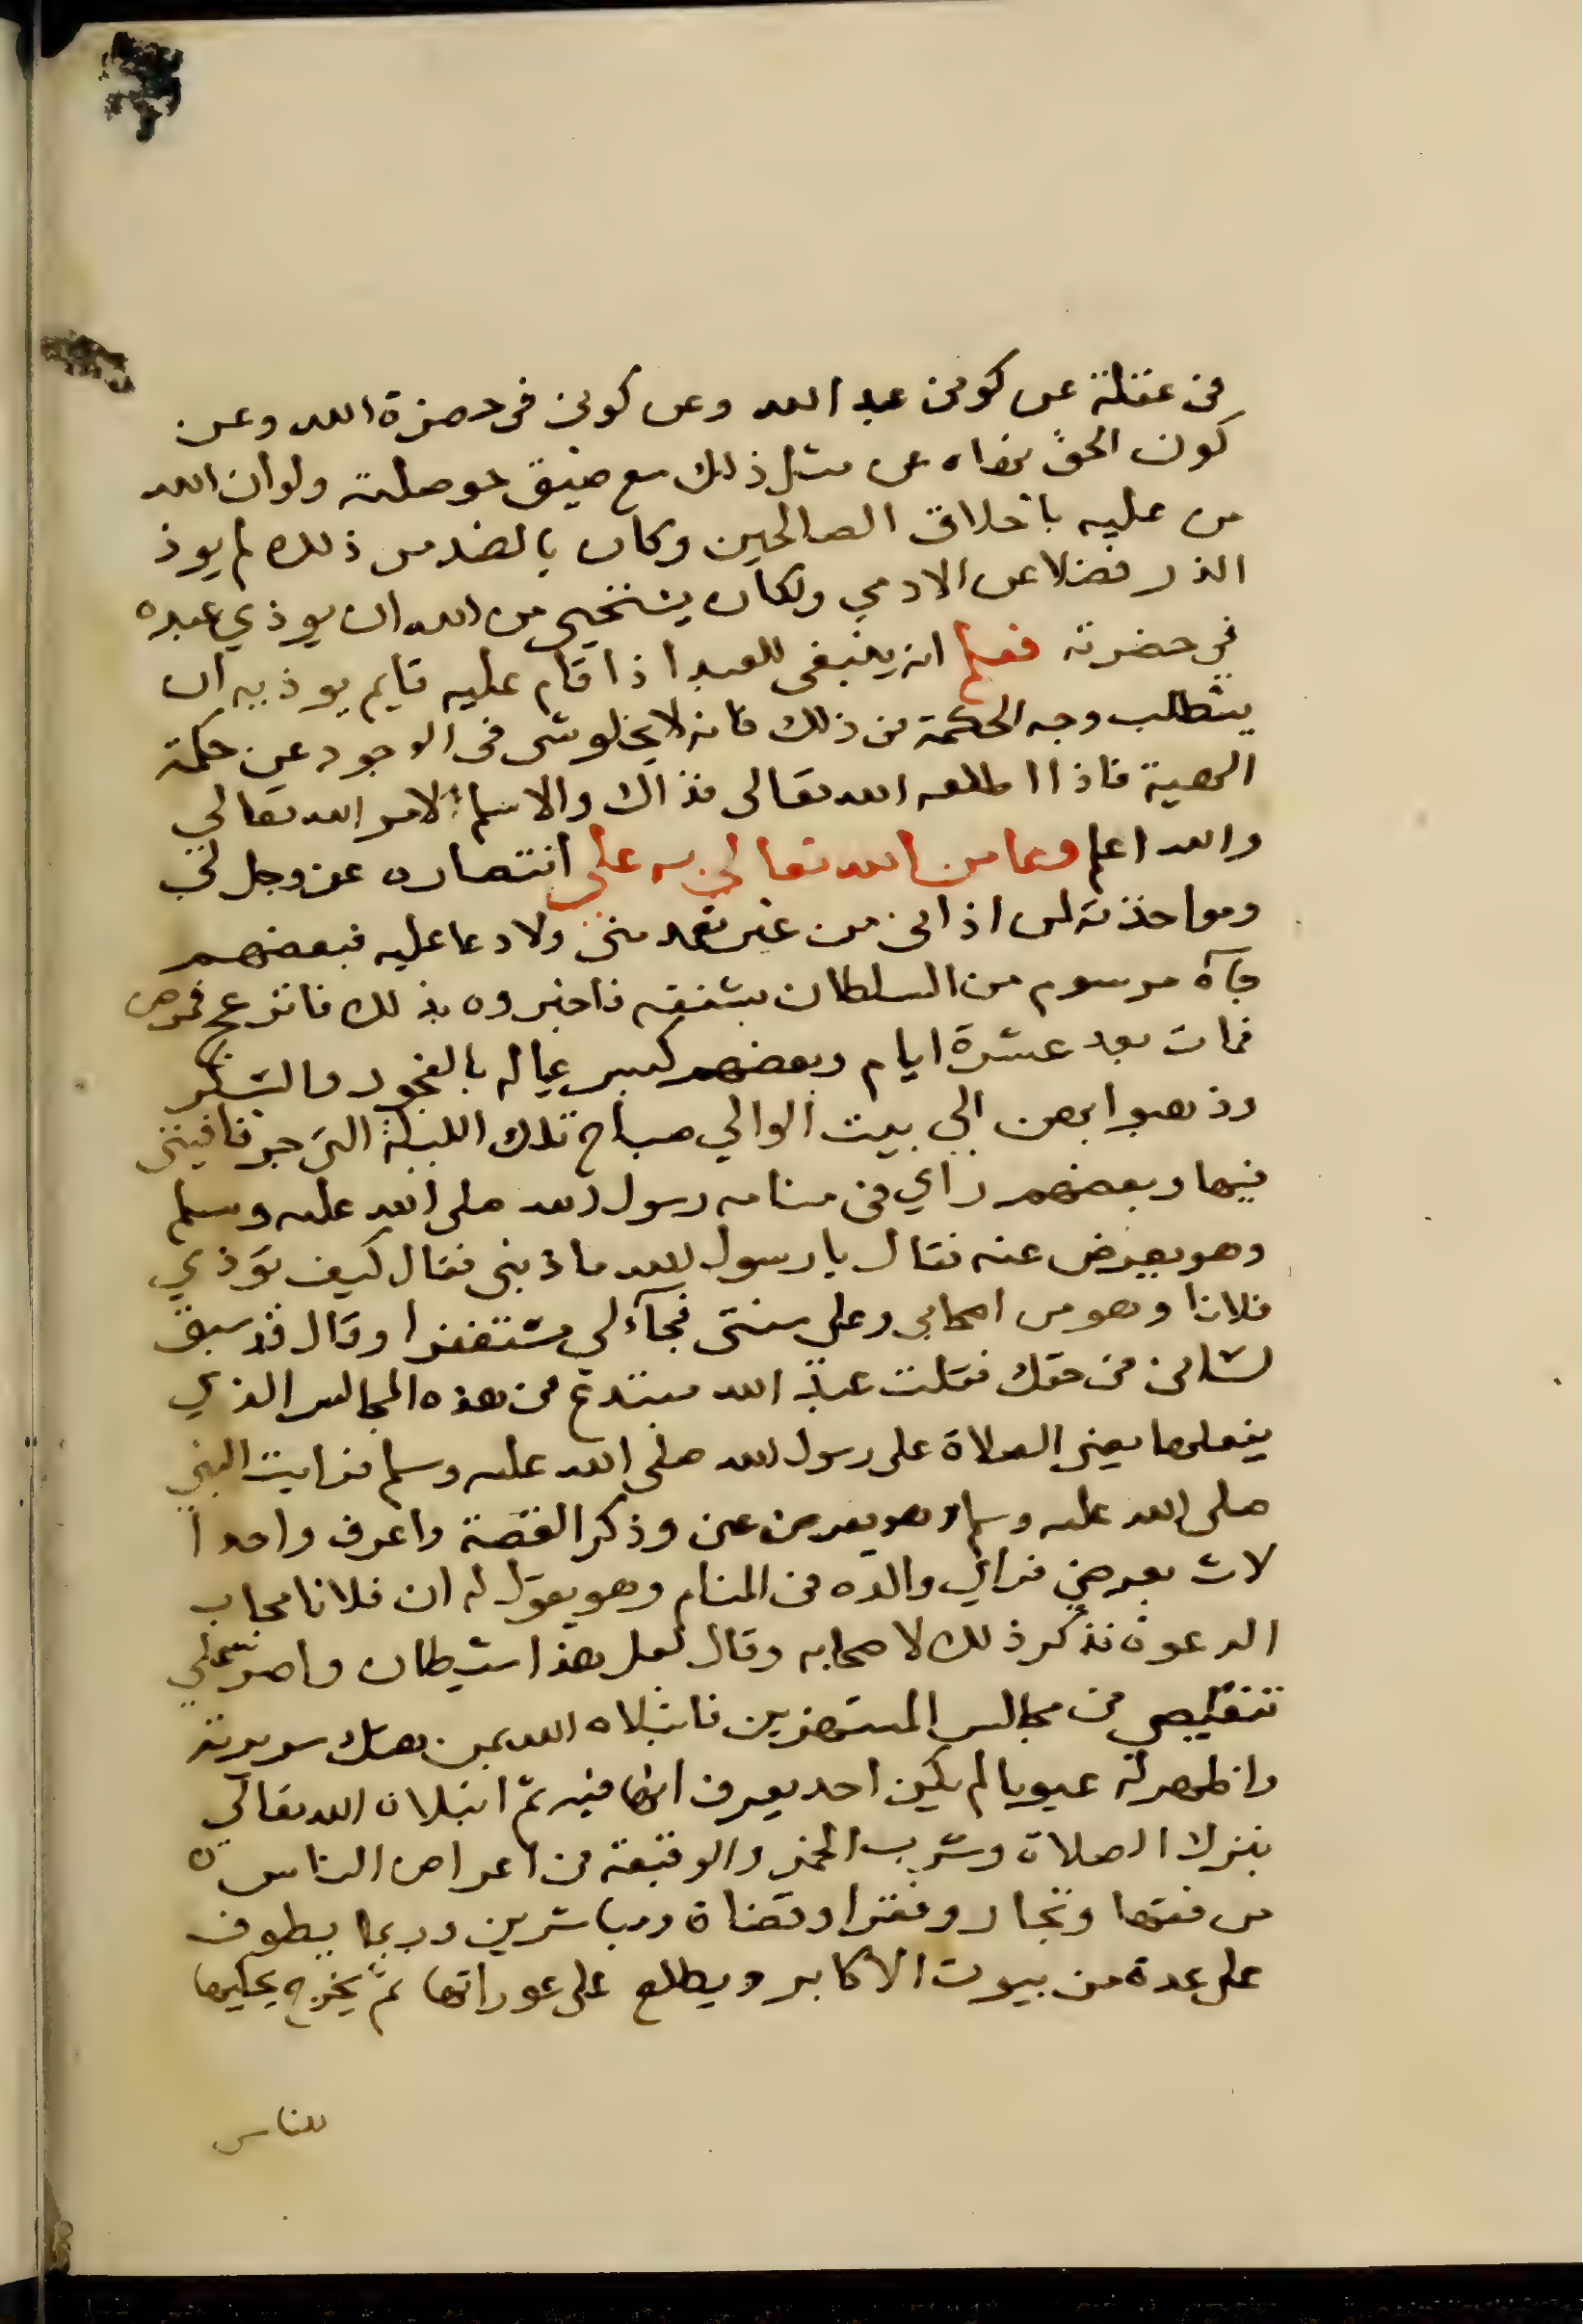 في غفلة عن كوني عبد الله وعن كوني في حضرة الله وعن
كون الحق نهاه عن مثل ذلك مع ضيق حوصلته ولو ان الله
من عليه باخلاق الصالحين وكان بالضد من ذلك لم يوذ
الذر فضلا عن الادمي ولكان يستحيي من الله ان يوذي عبده
في حضرته فعلم انه ينبغي للعبد اذا قام عليه قايم يوذيه ان
يتطلب وجه الحكمة في ذلك فانه لا يخلو شي في الوجود عن حكمة
الهية فاذا اطلعه الله تعالى فذاك والا سلم لامر الله تعالي
والله اعلم ومما من الله تعالي به علي انتصاره عز وجل لي
ومواخذته لمن اذاني من غير تعمد مني ولا دعا عليه فبعضهم
جآه مرسوم من السلطان بشنقه فاخبروه بذلك فانزعج فمرض
فمات بعد عشرة ايام وبعضهم كبس عياله بالفجور والسكر
وذهبوا بهن الي بيت الوالي صباح تلك الليلة التي جرقافيني
فيها وبعضهم راي في منامه رسول الله صلى الله عليه وسلم
وهو يعرض عنه فقال يا رسول الله ما ذنبي فقال كيف تؤذي
فلانا وهو من اصحابي وعلى سنتي فجآء لي مستغفرا وقال قد سبق
لساني في حقك فقلت عبد الله مبتدع في هذه المجالس الذي
يفعلها يعني الصلاة على رسول الله صلى الله عليه وسلم فرايت النبي
صلى الله عليه وسلم وهو يعرض عني وذكر القصة واعرف واحدا
لاث بعرضي فراي والده في المنام وهو يقول له ان فلانا مجاب
الدعوة فذكر ذلك لاصحابه وقال لعل هذا شيطان واصر علي
تنقيصي في مجالس المستهزين فابتلاه الله بمن هتك سريرته
واظهر له عيوبا لم يكن احد يعرف انها فيه ثم ابتلاه الله تعالي
بترك الصلاة وشرب الخمر والوقيعة في اعراض الناس
من فقها وتجار وفقرا وقضاة ومباشرين وربما يطوف
على عدة من بيوت الاكابر ويطلع على عوراتها ثم يخرج يحكيها
للناس